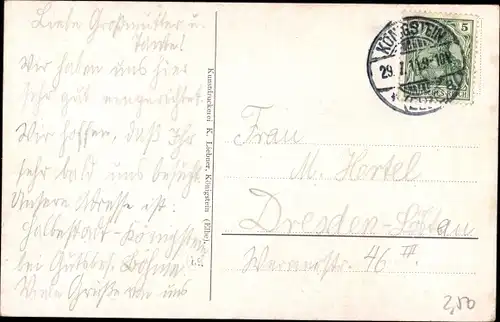 Liebe Großmutter u.
Tante!
Wir haben uns hier
sehr gut eingerichtet.
Wir hoffen, daß Ihr
sehr bald uns besucht.
Unsere Adresse ist:
Halbestadt-Königstein
bei Gutsbes. Böhme.
Viele Grüße von uns
Kunstdruckerei K. Liebner, Königstein (Elbe).
KÖNIGSTEIN
29.7.11.9-10V.
* (ELBE)
5
Frau
M. Hertel
Dresden-Löbtau
Wernerstr. 46 III.
2,50